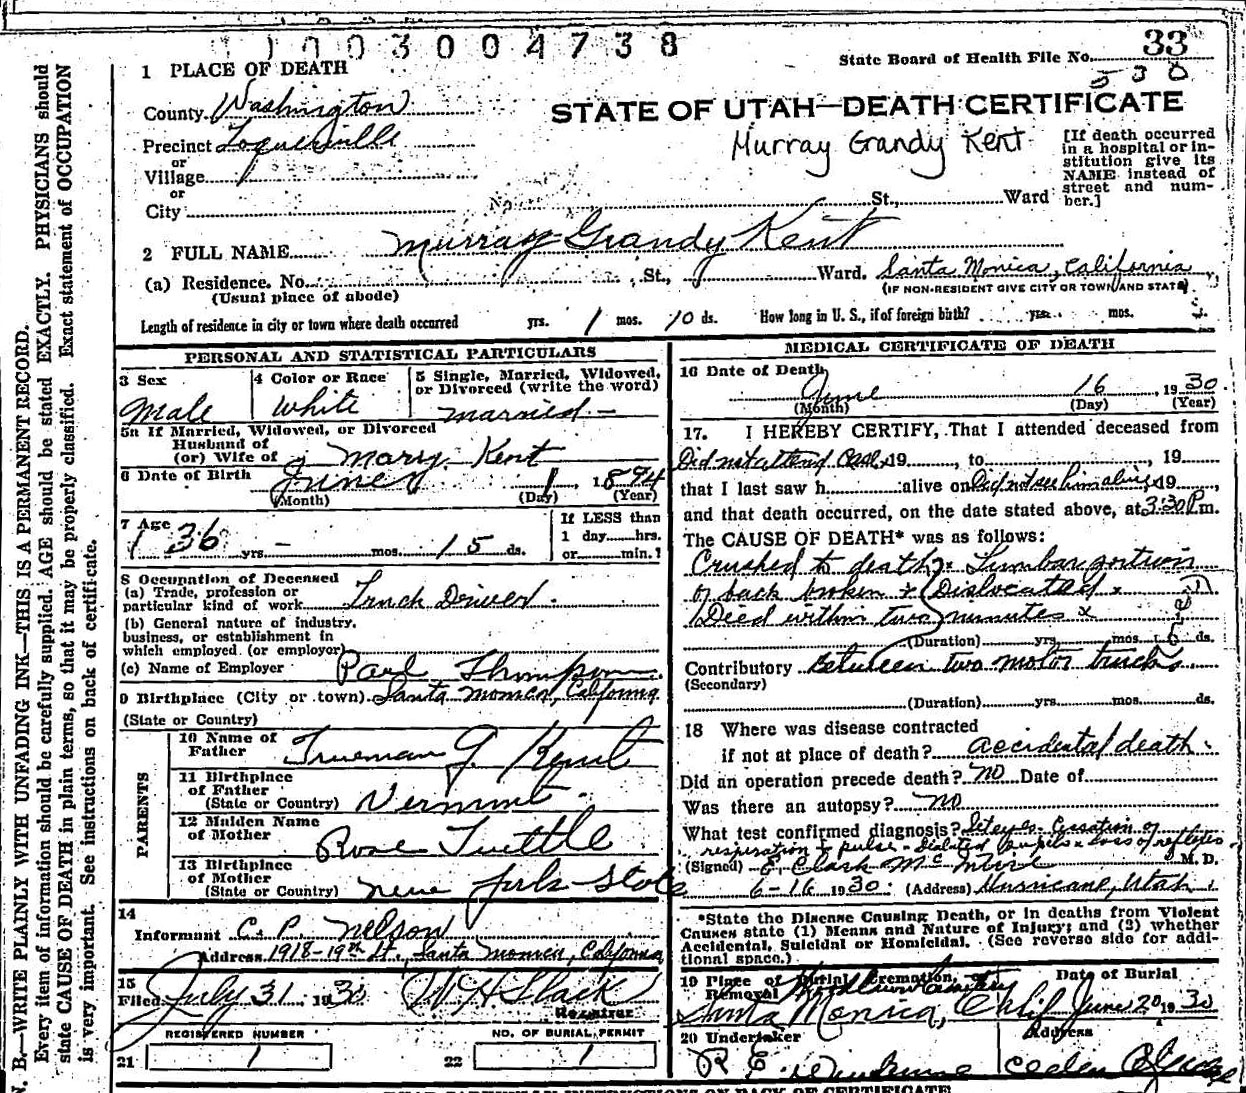 1003004738
State Board of Health File No. 33
530
1 PLACE OF DEATH
County Washington
STATE OF UTAH—DEATH CERTIFICATE
Precinct Toquerville
Murray Grandy Kent
[If death occurred in a hospital or institution give its NAME instead of street and number.]
or
Village
or
City No. St., Ward
2 FULL NAME Murray Grandy Kent
(a) Residence. No. St., Ward. Santa Monica, California
(Usual place of abode) (IF NON-RESIDENT GIVE CITY OR TOWN AND STATE)
Length of residence in city or town where death occurred yrs. 1 mos. 10 ds. How long in U. S., if of foreign birth? yrs. mos.
PERSONAL AND STATISTICAL PARTICULARS
3 Sex Male
4 Color or Race White
5 Single, Married, Widowed, or Divorced (write the word) married
5a If Married, Widowed, or Divorced
Husband of
(or) Wife of Mary Kent
6 Date of Birth June 1, 1894
(Month) (Day) (Year)
7 Age 36 yrs. — mos. 15 ds.
If LESS than
1 day hrs.
or min.?
8 Occupation of Deceased
(a) Trade, profession or
particular kind of work Truck Driver
(b) General nature of industry,
business, or establishment in
which employed (or employer)
(c) Name of Employer Thompson
9 Birthplace (City or town) Santa Monica, California
(State or Country)
PARENTS
10 Name of
Father Trueman G. Kent
11 Birthplace
of Father
(State or Country) Vermont
12 Maiden Name
of Mother Rose Tuttle
13 Birthplace
of Mother
(State or Country) New York State
14
Informant C. P. Nelson
Address 1918-19th St., Santa Monica, California
15
Filed July 31 1930 W H Slack
Registrar
REGISTERED NUMBER
21 1
NO. OF BURIAL PERMIT
22 1
MEDICAL CERTIFICATE OF DEATH
16 Date of Death
June 16, 1930
(Month) (Day) (Year)
17. I HEREBY CERTIFY, That I attended deceased from
Did not attend Case, 19 , to , 19
that I last saw h alive on Did not see him alive, 19 ,
and that death occurred, on the date stated above, at 3:30 P m.
The CAUSE OF DEATH* was as follows:
Crushed to death. Lumbar portion
of back broken & Dislocated
Died within two minutes
(Duration) yrs. mos. ds.
Contributory Between two motor trucks
(Secondary)
(Duration) yrs. mos. ds.
18 Where was disease contracted
if not at place of death? accidental death
Did an operation precede death? no Date of
Was there an autopsy? no
What test confirmed diagnosis? Cessation of
respiration & pulse - Dilated pupils & loss of reflexes
(Signed) E. Clark McIntire M. D.
6-16 1930 (Address) Hurricane, Utah
*State the Disease Causing Death, or in deaths from Violent
Causes state (1) Means and Nature of Injury; and (2) whether
Accidental, Suicidal or Homicidal. (See reverse side for addi-
tional space.)
19 Place of Burial Cremation, or Removal Woodlawn Cemetery
Date of Burial
Santa Monica, Calif June 20 1930
20 Undertaker Address
R E Cedar
N. B.—WRITE PLAINLY WITH UNFADING INK—THIS IS A PERMANENT RECORD.
Every item of information should be carefully supplied. AGE should be stated EXACTLY. PHYSICIANS should
state CAUSE OF DEATH in plain terms, so that it may be properly classified. Exact statement of OCCUPATION
is very important. See instructions on back of certificate.